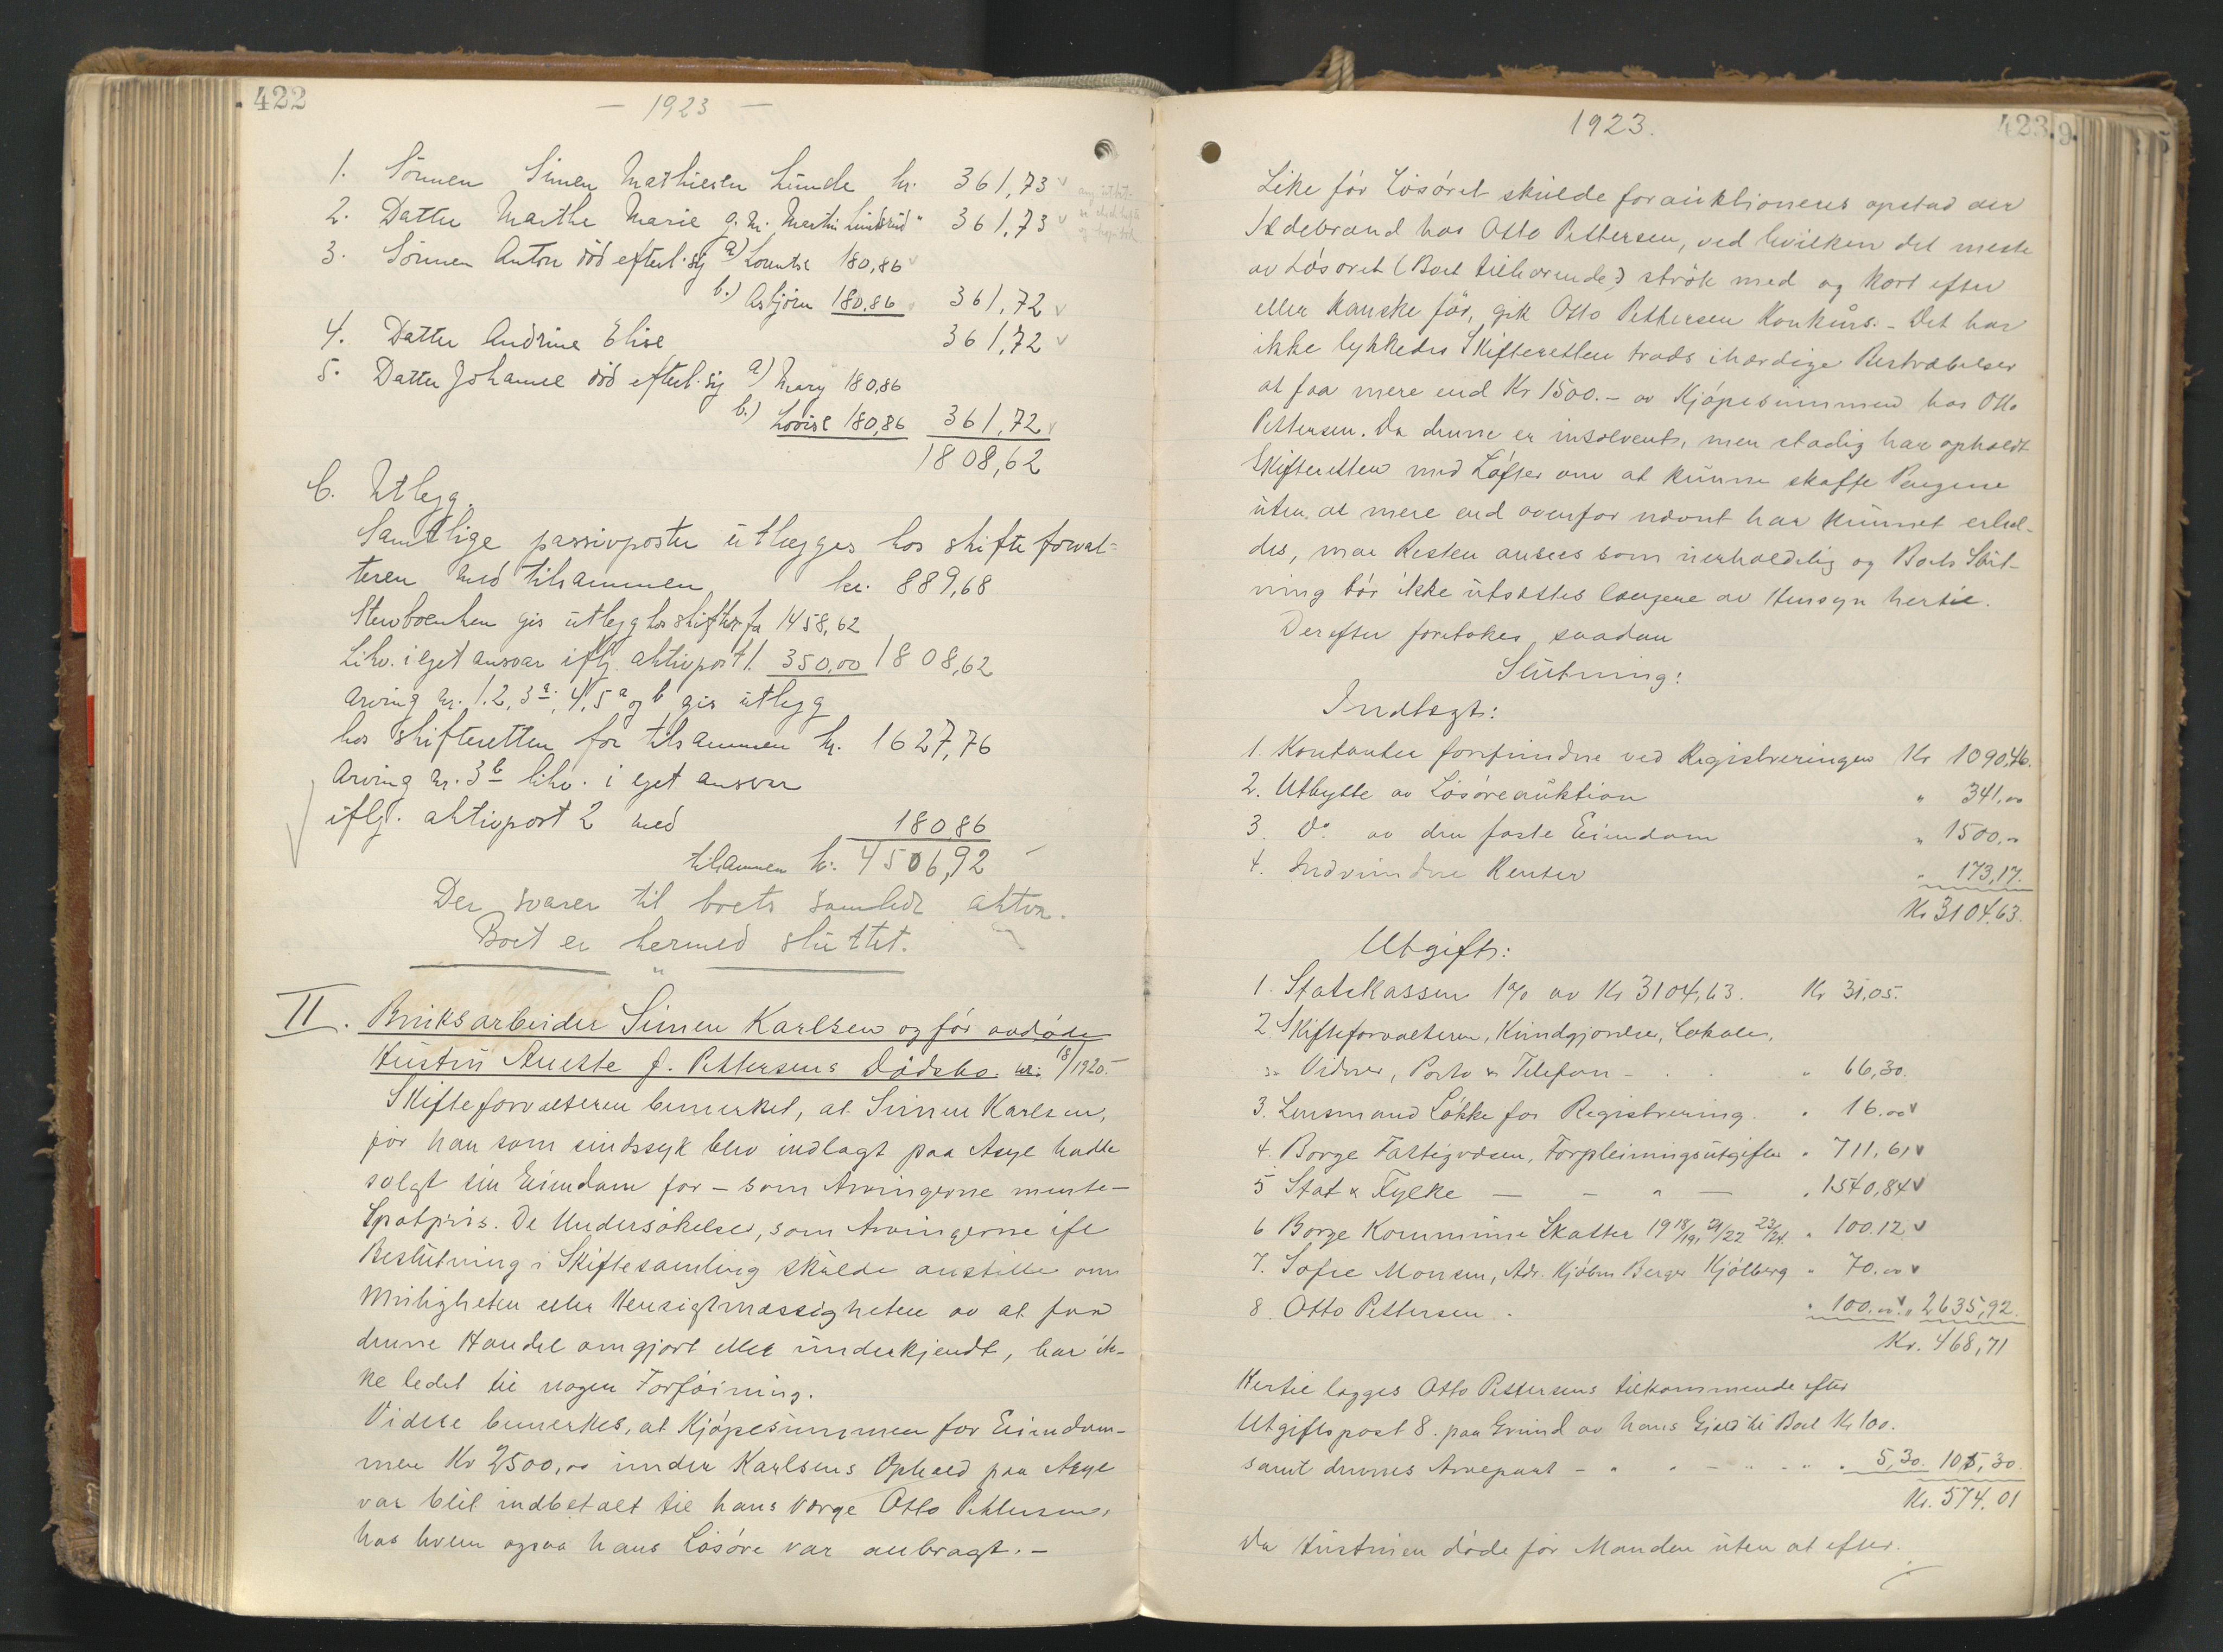 422
— 1923 —
1. Sönnen Simen Mathiesen Lunde kr. 361,73
2. Datter Marthe Marie g. m. Martin " 361,73
3. Sönnen Anton död efterl. sig a) Lorentse 180,86
b.) Asbjörn 180,86 361,72
4. Datter Andrine Elise 361,72
5. Datter Johanne död efterl. sig a) Mary 180,86
b.) Lovise 180,86 361,72
1808,62
C. Utlegg.
Samtlige passivposter utlegges hos skifteforval=
teren med tilsammen kr. 889,68
Stervboenken gis utlegg hos skifterf. 1458,62
Likv. i eget ansvar iflg. aktivpost 1. 350,00 1808,62
Arving nr. 1. 2, 3a, 4, 5a og b gis utlegg
hos skifteretten for tilsammen kr. 1627,76
Arving nr. 3b likv. i eget ansvar
iflg. aktivpost 2 med 180,86
tilsammen kr. 4506,92
Der svarer til boets samlede aktiva.
Boet er hermed sluttet.
II. Bruksarbeider Simen Karlsen og før avdøde
Hustru Anette f. Pettersens Dödsbo. nr. 18/1920.
Skifteforvalteren bemerket, at Simen Karlsen,
før han som sindssyk blev indlagt paa Asyl hadde
solgt sin Eiendom for – som Arvingerne mente –
Spotpris. De Undersøkelser, som Arvingerne ifl
Beslutning i Skiftesamling skulde anstille om
Muligheten eller Hensigtmæssigheten av at faa
denne Handel omgjort eller underkjendt, har ik-
ke ledet til nogen Forføining.
Videre bemerkes, at Kjøpesummen for Eiendom-
men Kr 2500,00 under Karlsens Ophold paa Asyl
var blit indbetalt til hans Værge Otto Pettersen,
hos hvem ogsaa hans Løsøre var anbragt. –
1923.
423
9
Like før Løsøret skulde forauktioneres opstod der
Ildebrand hos Otto Pettersen, ved hvilken det meste
av Løsøret (Boet tilhørende) strøk med og kort efter
eller kanske før, gik Otto Pettersen Konkurs. – Det har
ikke lykkedes Skifteretten trods ihærdige Bestræbelser
at faa mere end Kr 1500.– av Kjøpesummen hos Otto
Pettersen. Da denne er insolvent, men stadig har opholdt
Skifteretten med Løfter om at kunne skaffe Pengene
uten at mere end ovenfor nævnt har kunnet erhol-
des, maa Resten ansees som uerholdelig og Boets Slut-
ning bør ikke utsættes længere av Hensyn hertil.
Derefter foretokes saadan
Slutning:
Indtægt:
1. Kontanter forefundne ved Registreringen Kr 1090,46.
2. Utbytte av Løsøreauktion " 341,00
3. Do. av den faste Eiendom " 1500,00
4. Indvundne Renter " 173,17.
Kr 3104,63.
Utgift:
1. Statskassen 1% av Kr 3104,63. Kr 31,05.
2. Skifteforvalteren, Kundgjørelse, Lokale,
Vidner, Porto & Telefon - . . " 66,30.
3. Lensmand Løkke for Registrering. " 16.00
4. Borge Fattigvæsen, Forpleiningsutgifter " 711,61
5 Stat & Fylke — - " — " 1540,84
6 Borge Kommune Skatter 1918/19, 21/22 23/24. " 100.12
7. Sofie Monsen, Adr. Kjøbm Berger Kjølberg " 70.00
8. Otto Pettersen . " 100.00 " 2635,92.
Kr. 468,71
Hertil lægges Otto Pettersens tilkommende efter
Utgiftspost 8. paa Grund av hans Gjæld til Boet Kr 100.
samt dennes Arvepart - " " - " " " 5,30. 105,30.
Kr. 574,01
Da Hustruen døde før Manden uten at efter-